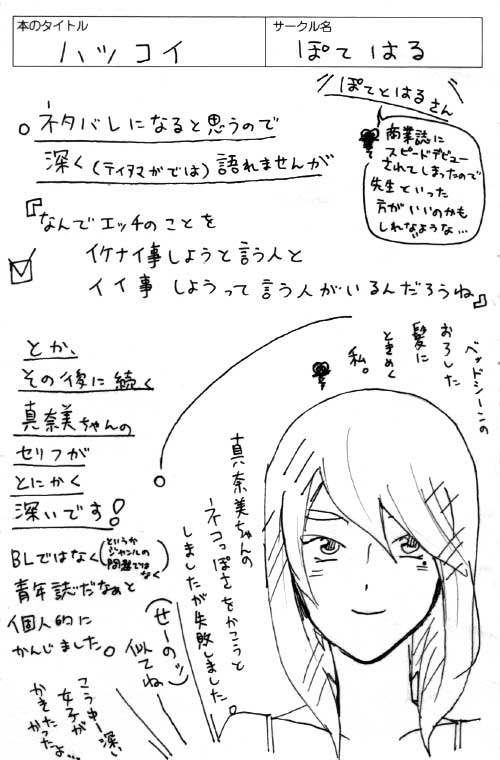 本のタイトル
ハツコイ
サークル名
ぽてはる
ぽてとはるさん
商業誌に
スピードデビュー
されてしまったので
先生といった
方がいいのかも
しれないような…
ネタバレになると思うので
深く(ティアマがでは)語れませんが
『なんでエッチのことを
イケナイ事しようと言う人と
イイ事 しようって言う人がいるんだろうね』
とか、
その後に続く
真奈美ちゃんの
セリフが
とにかく
深いです!
BLではなく
(というか
ジャンルの
問題では
なく)
青年誌だなぁと
個人的に
かんじました。
ベッドシーンの
おろした
髪に
ときめく
私。
真奈美ちゃんの
ネコっぽさをかこうと
しましたが失敗しました。
(せーのッ)
似てねぇ
こうゆー深い
女子が
かきたかったよ…